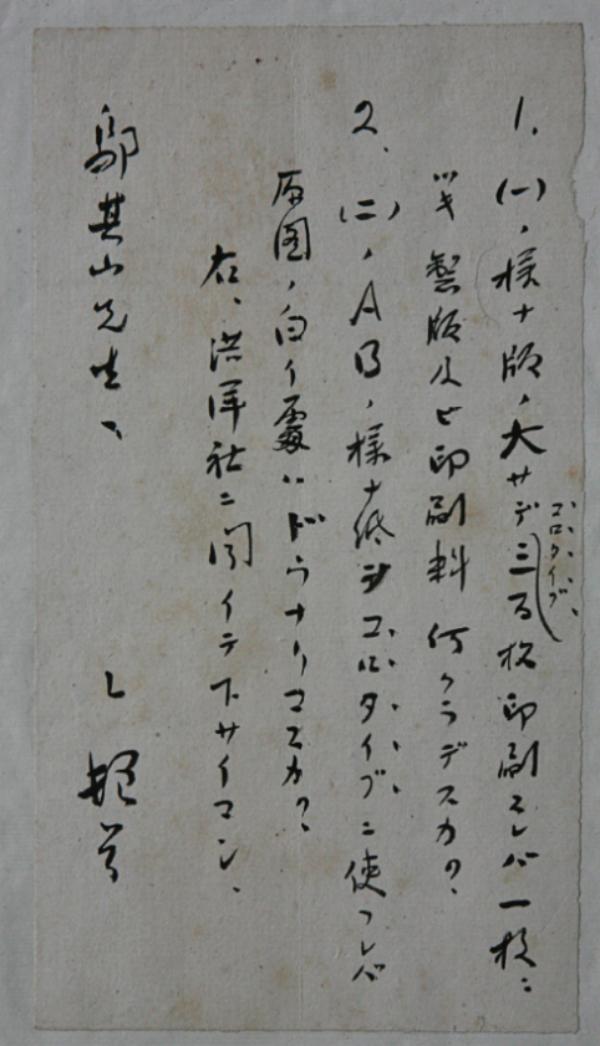 1. (一)ノ様ナ版ノ大サデ三百枚印刷スレバ一枚ニ
コロタイプ
ツキ製版及ヒ印刷料何クラデスカ?
2. (二)ノABノ様ナ紙ヲコロタイプニ使フレバ
原図ノ白イ處ハドウナリマスカ?
右、洪洋社ニ聞イテ下サイマシ、
鄔其山先生、
L 頓首